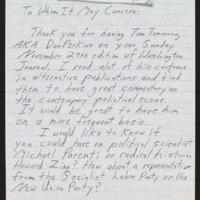 To Whom It May Concern:
Thank you for having Tom Tomorrow,
AKA Dan Perkins on your Sunday
November 29th edition of Washington
Journal. I read alot of his cartoons
in alternative publications and find
them to have great commentary on
the contempory political scene.
It would be great to have him
on a more frequent basis.
I would like to know if
you could have on political scientist
Michael Parenti or radical historian
Howard Zinn? How about a representation
from the Socialist Labor Party or the
New Union Party?